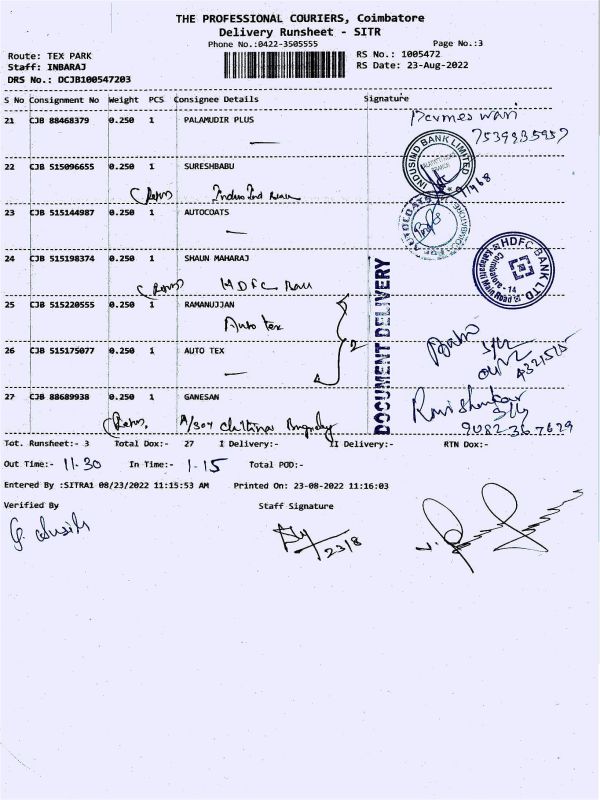 THE PROFESSIONAL COURIERS, Coimbatore
Delivery Runsheet - SITR
Phone No.:0422-3505555 Page No.:3
Route: TEX PARK RS No.: 1005472
Staff: INBARAJ RS Date: 23-Aug-2022
DRS No.: DCJB100547203
S No Consignment No Weight PCS Consignee Details Signature
21 CJB 88468379 0.250 1 PALAMUDIR PLUS
7539935957
INDUSIND BANK LIMITED
22 CJB 515096655 0.250 1 SURESHBABU
IndusInd
23 CJB 515144987 0.250 1 AUTOCOATS
AUTOCOATS
24 CJB 515198374 0.250 1 SHAUN MAHARAJ
HDFC
HDFC BANK LTD
Kalapatti Main Road
Coimbatore - 14
DOCUMENT DELIVERY
25 CJB 515220555 1 0.250 RAMANUJJAN
Auto tex
2
26 CJB 515175077 0.250 1 AUTO TEX
4321515
27 CJB 88689938 0.250 1 GANESAN
Ravi Shankar
9082367629
A/304
Tot. Runsheet:- 3 Total Dox:- 27 I Delivery:- II Delivery:- RTN Dox:-
Out Time:- 11.30 In Time:- 1.15 Total POD:-
Entered By :SITRA1 08/23/2022 11:15:53 AM Printed On: 23-08-2022 11:16:03
Verified By Staff Signature
23/8